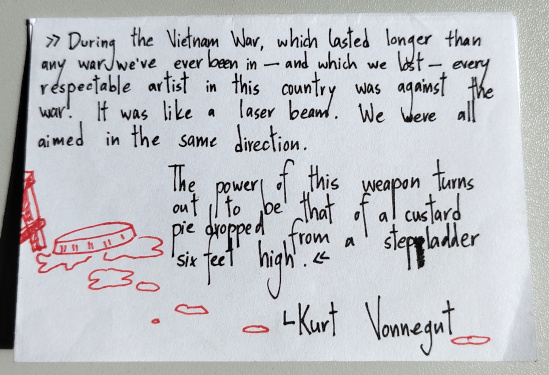 » During the Vietnam War, which lasted longer than
any war we've ever been in – and which we lost – every
respectable artist in this country was against the
war. It was like a laser beam. We were all
aimed in the same direction.
The power of this weapon turns
out to be that of a custard
pie dropped from a stepladder
six feet high. «
Kurt Vonnegut